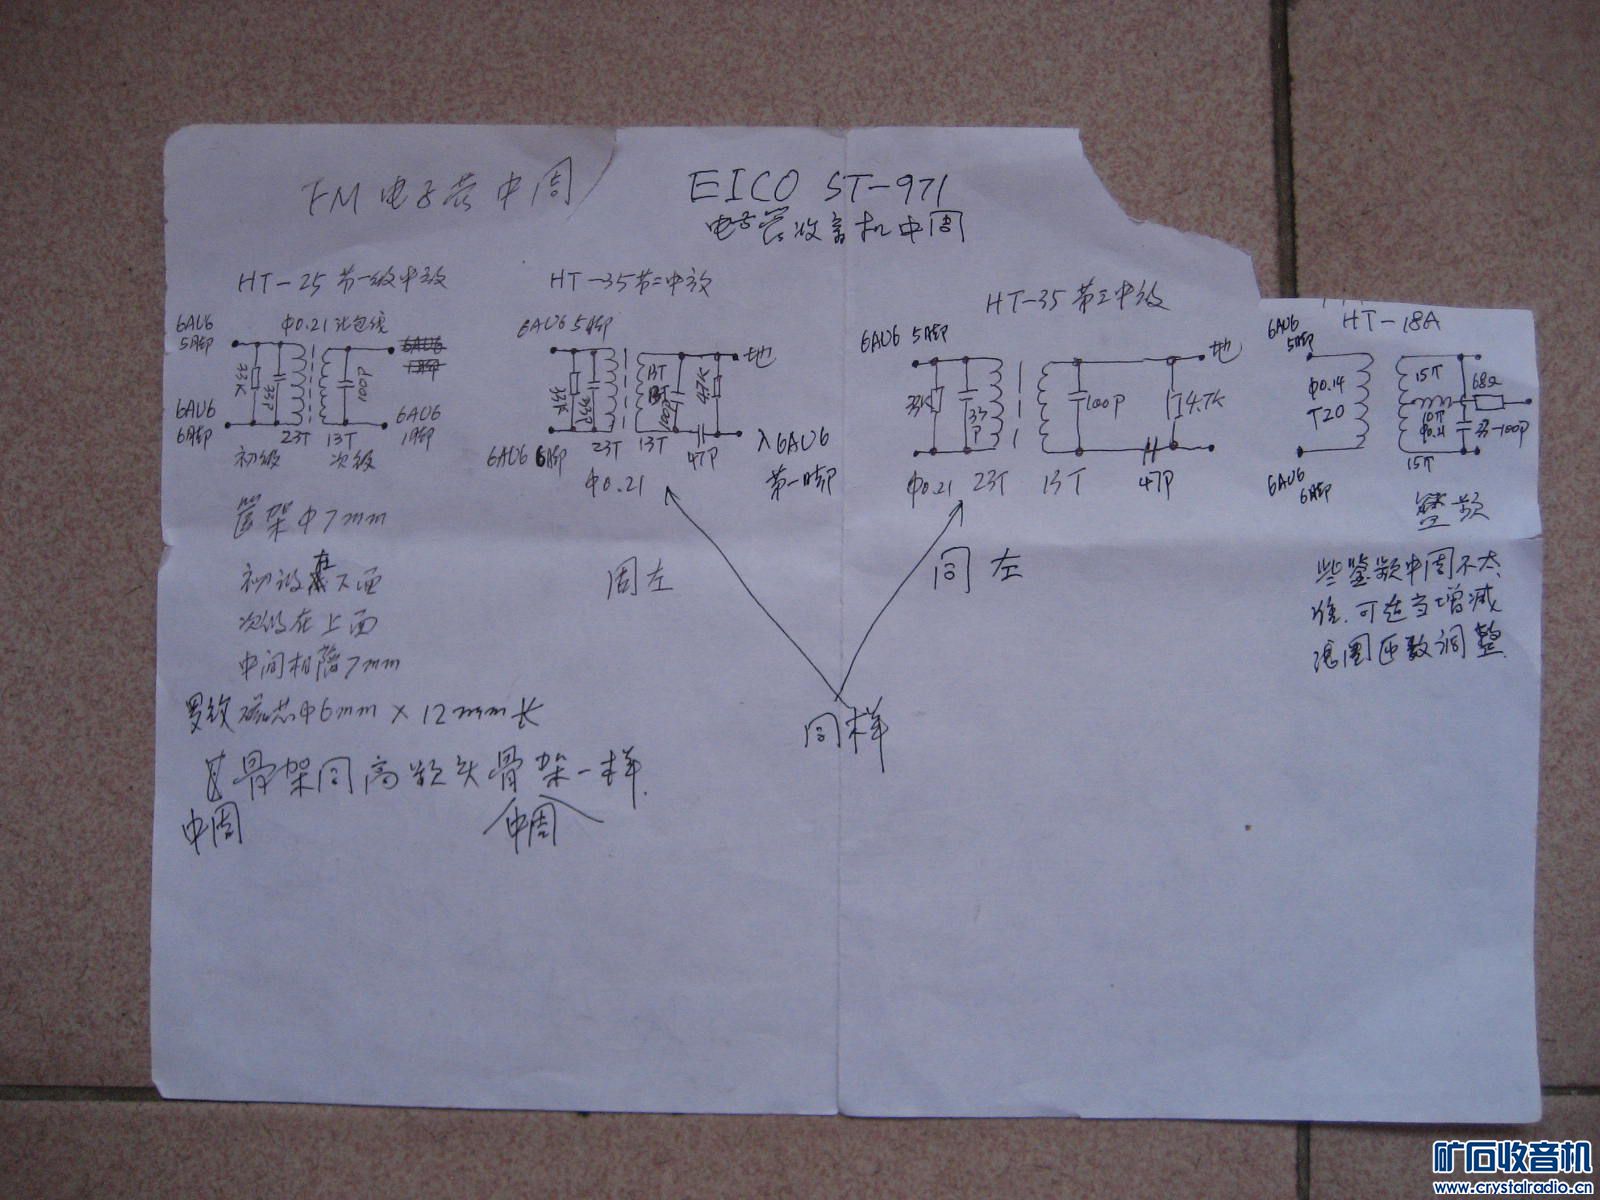 FM电子管中周
EICO ST-971
电子管收音机中周
HT-25 第一级中放
6AU6
5脚
φ0.21沙包线
33K
33P
100P
6AU6
6脚
6AU6
1脚
23T
13T
初级
次级
管架φ7mm
初级在下面
次级在上面
中间相隔7mm
磁芯φ6mm×12mm长
骨架同高频头骨架一样
中周
中周
HT-35第二中放
6AU6 5脚
33K
33P
100P
4.7K
地
6AU6 6脚
23T
13T
47P
入6AU6
第一脚
φ0.21
周左
HT-35 第三中放
6AU6 5脚
地
33K
33P
100P
4.7K
φ0.21
23T
13T
47P
同左
同样
HT-18A
6AU6
5脚
φ0.14
T20
15T
68Ω
10T
φ0.21
100P
15T
6AU6
6脚
鉴频
些鉴频中周不太
准.可适当增减
线圈匝数调整
矿石收音机
www.crystalradio.cn